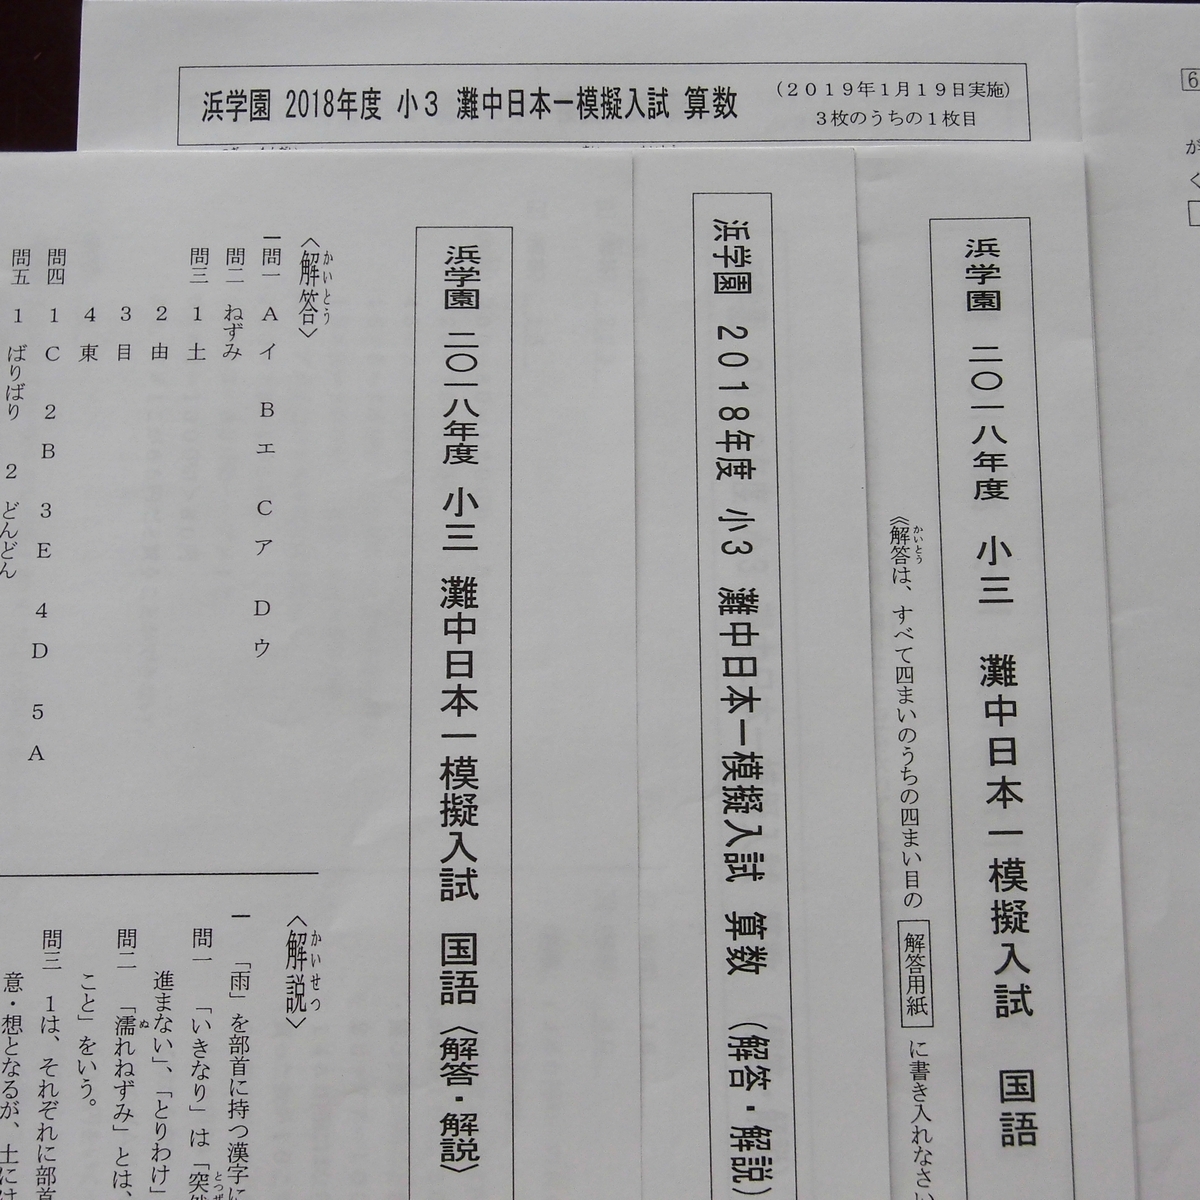 浜学園 2018年度 小3 灘中日本一模擬入試 算数
(2019年1月19日実施)
3枚のうちの1枚目
6
が
く
浜学園 二〇一八年度 小三 灘中日本一模擬入試 国語
《解答は、すべて四まいのうちの四まい目の 解答用紙 に書き入れなさい
かいとう
浜学園 2018年度 小3 灘中日本一模擬入試 算数 (解答・解説)
浜学園 二〇一八年度 小三 灘中日本一模擬入試 国語〈解答・解説〉
〈解答〉
かいとう
一 問一 A イ B エ C ア D ウ
問二 ねずみ
問三 1 土
2 由
3 目
4 東
問四 1 C 2 B 3 E 4 D 5 A
問五 1 ばりばり 2 どんどん
〈解説〉
かいせつ
一 「雨」を部首に持つ漢字に
問一 「いきなり」は「突然
とつぜ
進まない」、「とりわけ」
問二 「濡れねずみ」とは、
ぬ
こと」をいう。
問三 1は、それぞれに部首
意・想となるが、土には